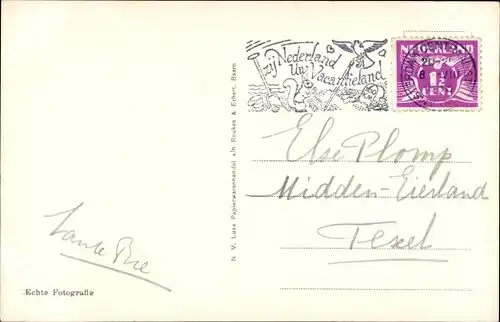 zij Nederland
Uw Vacantieland
1½
CENT
Else Plomp
Midden-Eierland
Texel
Tante Bie
Echte Fotografie
N. V. Luxe Papierwarenhandel v/h Roukes & Erhart, Baarn